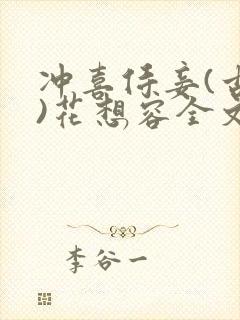 冲喜侍妾(古
)花想容全文
李谷一